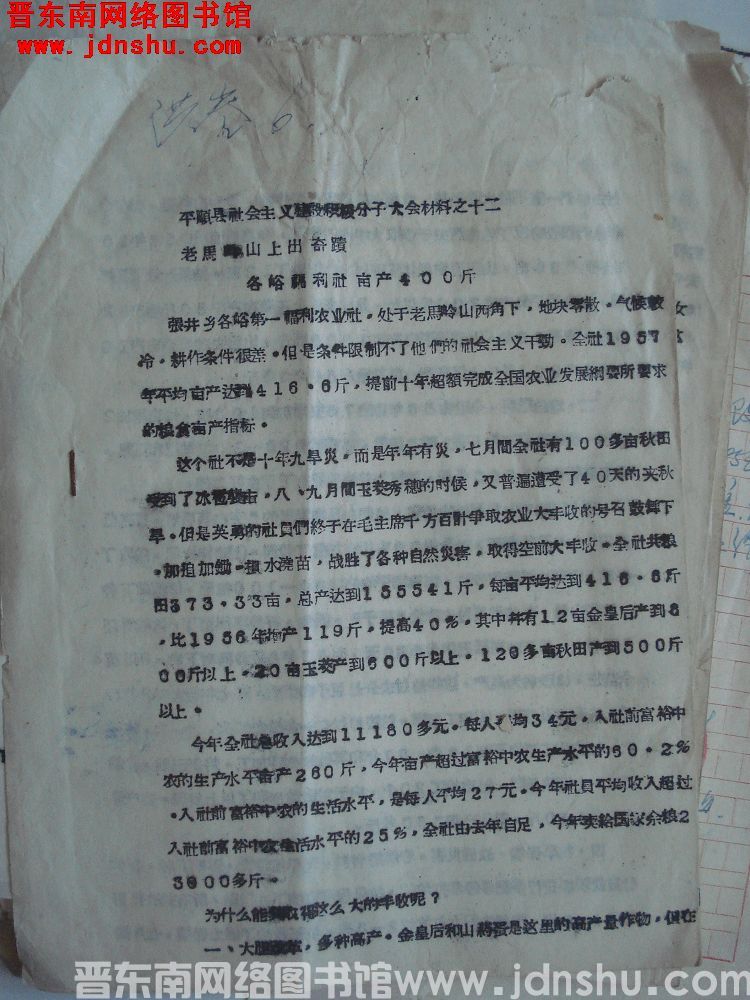 晋东南网络图书馆
www.jdnshu.com
平順县社会主义建設积极分子大会材料之十二
老馬岭山上出奇蹟
各峪福利社亩产400斤
張井乡各峪第一福利农业社。处于老馬岭山西角下，地块零散。气候較
冷。耕作条件很差。但是条件限制不了他們的社会主义干勁。全社1957
年平均亩产达到416·6斤，提前十年超額完成全国农业发展綱要所要求
的粮食亩产指标。
这个社不是十年九旱災。而是年年有災，七月間全社有100多亩秋田
受到了冰雹袭击，八、九月間玉茭秀穗的时候，又普遍遭受了40天的夹秋
旱。但是英勇的社員們終于在毛主席千方百計争取农业大丰收的号召鼓舞下
。加追加鋤。担水澆苗，战胜了各种自然災害，取得空前大丰收。全社共粮
田373·33亩，总产达到155541斤，每亩平均达到416·6斤
，比1956年增产119斤，提高40%，其中并有12亩金皇后产到8
00斤以上。20亩玉茭产到600斤以上。120多亩秋田产到500斤
以上。
今年全社总收入达到11180多元。每人平均34元。入社前富裕中
农的生产水平亩产260斤，今年亩产超过富裕中农生产水平的60·2%
。入社前富裕中农的生活水平，是每人平均27元。今年社員平均收入超过
入社前富裕中农生活水平的25%，全社由去年自足，今年卖給国家余粮2
3000多斤。
为什么能夠取得这么大的丰收呢？
一、大胆改革，多种高产。金皇后和山葯蛋是这里的高产量作物，但在
晋东南网络图书馆www.jdnshu.com